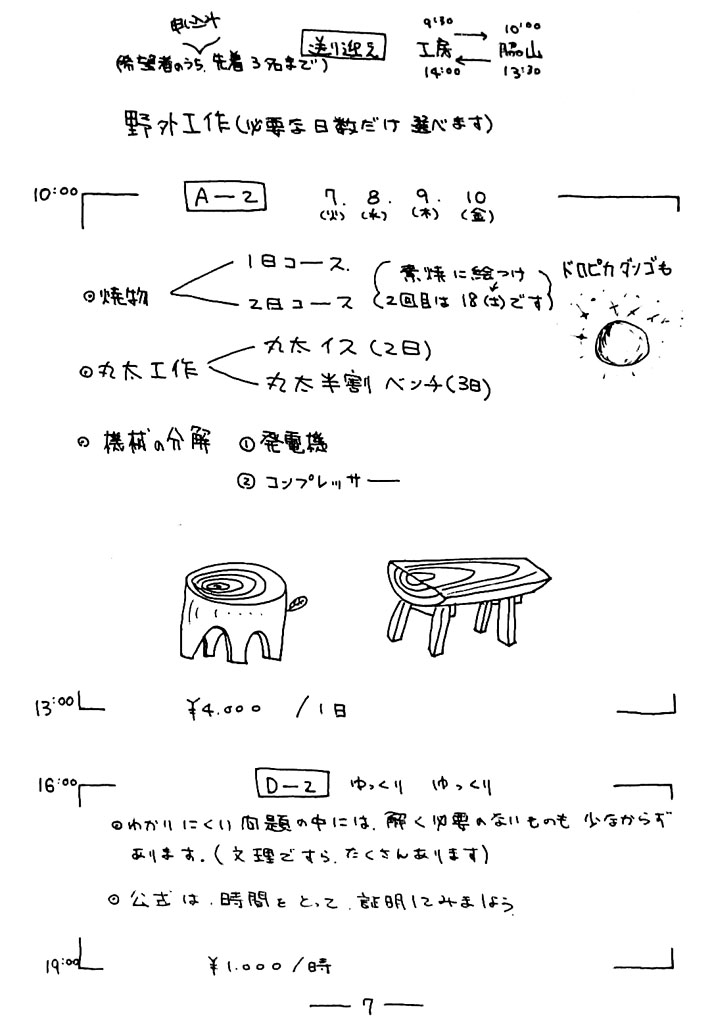 申し込み
(希望者のうち、先着3名まで)
送り迎え
9:30 10:00
工房 脇山
14:00 13:30
野外工作(必要な日数だけ 選べます)
10:00
A-2 7. 8. 9. 10
(火) (水) (木) (金)
焼物
1日コース.
2日コース
(素焼に絵つけ
2回目は18(土)です)
ドロピカダンゴも
丸太工作
丸太イス(2日)
丸太半割ベンチ(3日)
機械の分解 ①発電機
②コンプレッサー
13:00 ¥4.000 /1日
16:00 D-2 ゆっくり ゆっくり
わかりにくい問題の中には、解く必要のないものも少なからず
あります。(文理ですら、たくさんあります)
公式は、時間をとって、証明してみましょう
19:00 ¥1.000/時
— 7 —